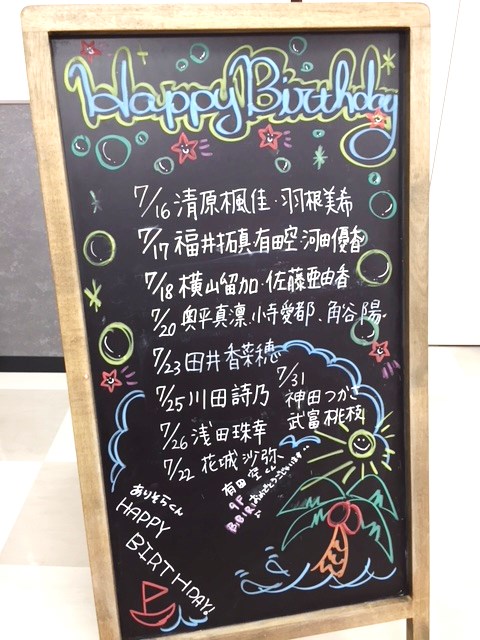 Happy Birthday
7/16 清原楓佳・羽根美希
7/17 福井拓真・有田空・河田優香
7/18 横山留加・佐藤亜由香
7/20 奥平真凛、小寺愛都、角谷陽
7/23 田井香菜穂
7/25 川田詩乃
7/31
神田つかさ
武富桃枝
7/26 浅田珠幸
7/22 花城沙弥
有田空くん
おめでとうございます
9F
ありそらくん
HAPPY
BIRTHDAY!